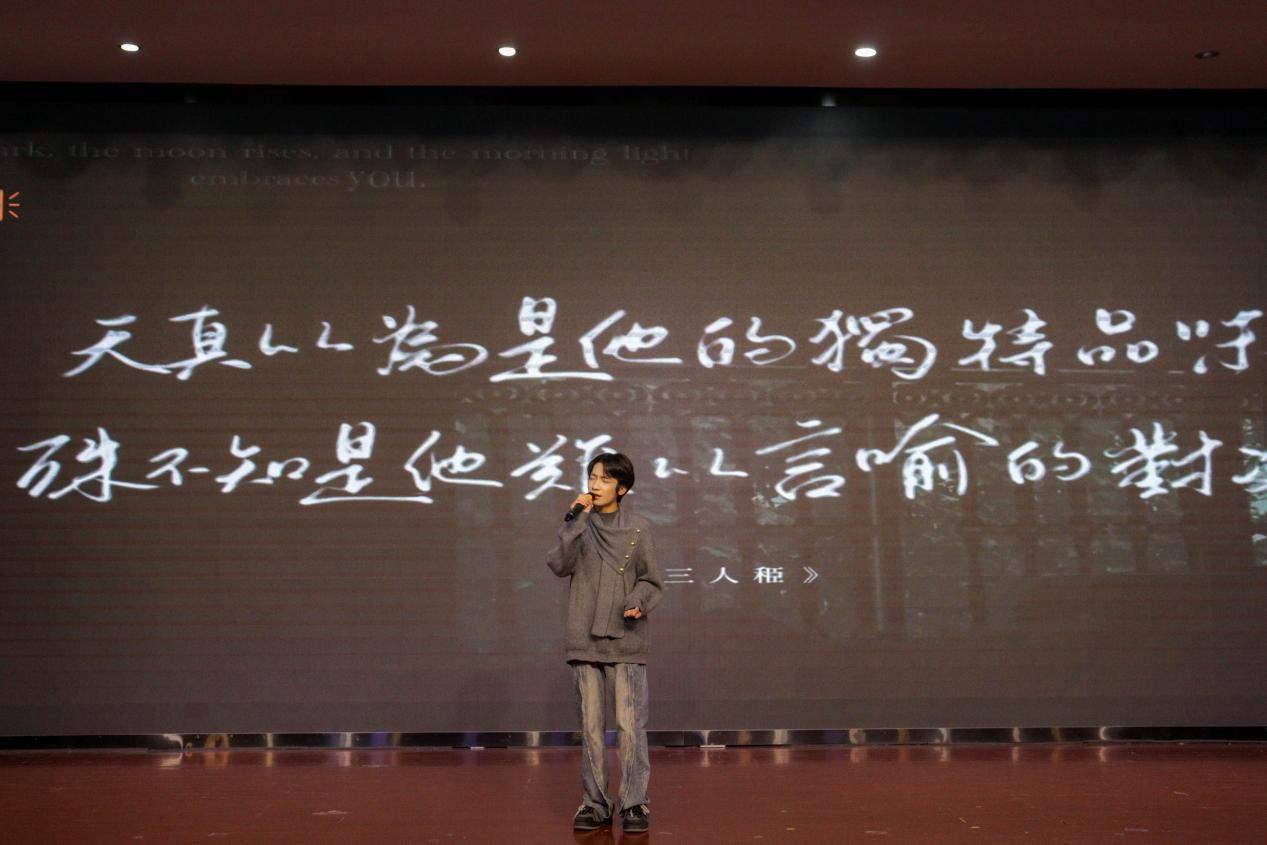 rk, the moon rises, and the morning light
embraces you.
天真以為是他的獨特品
殊不知是他難以言喻的對
三人稱》